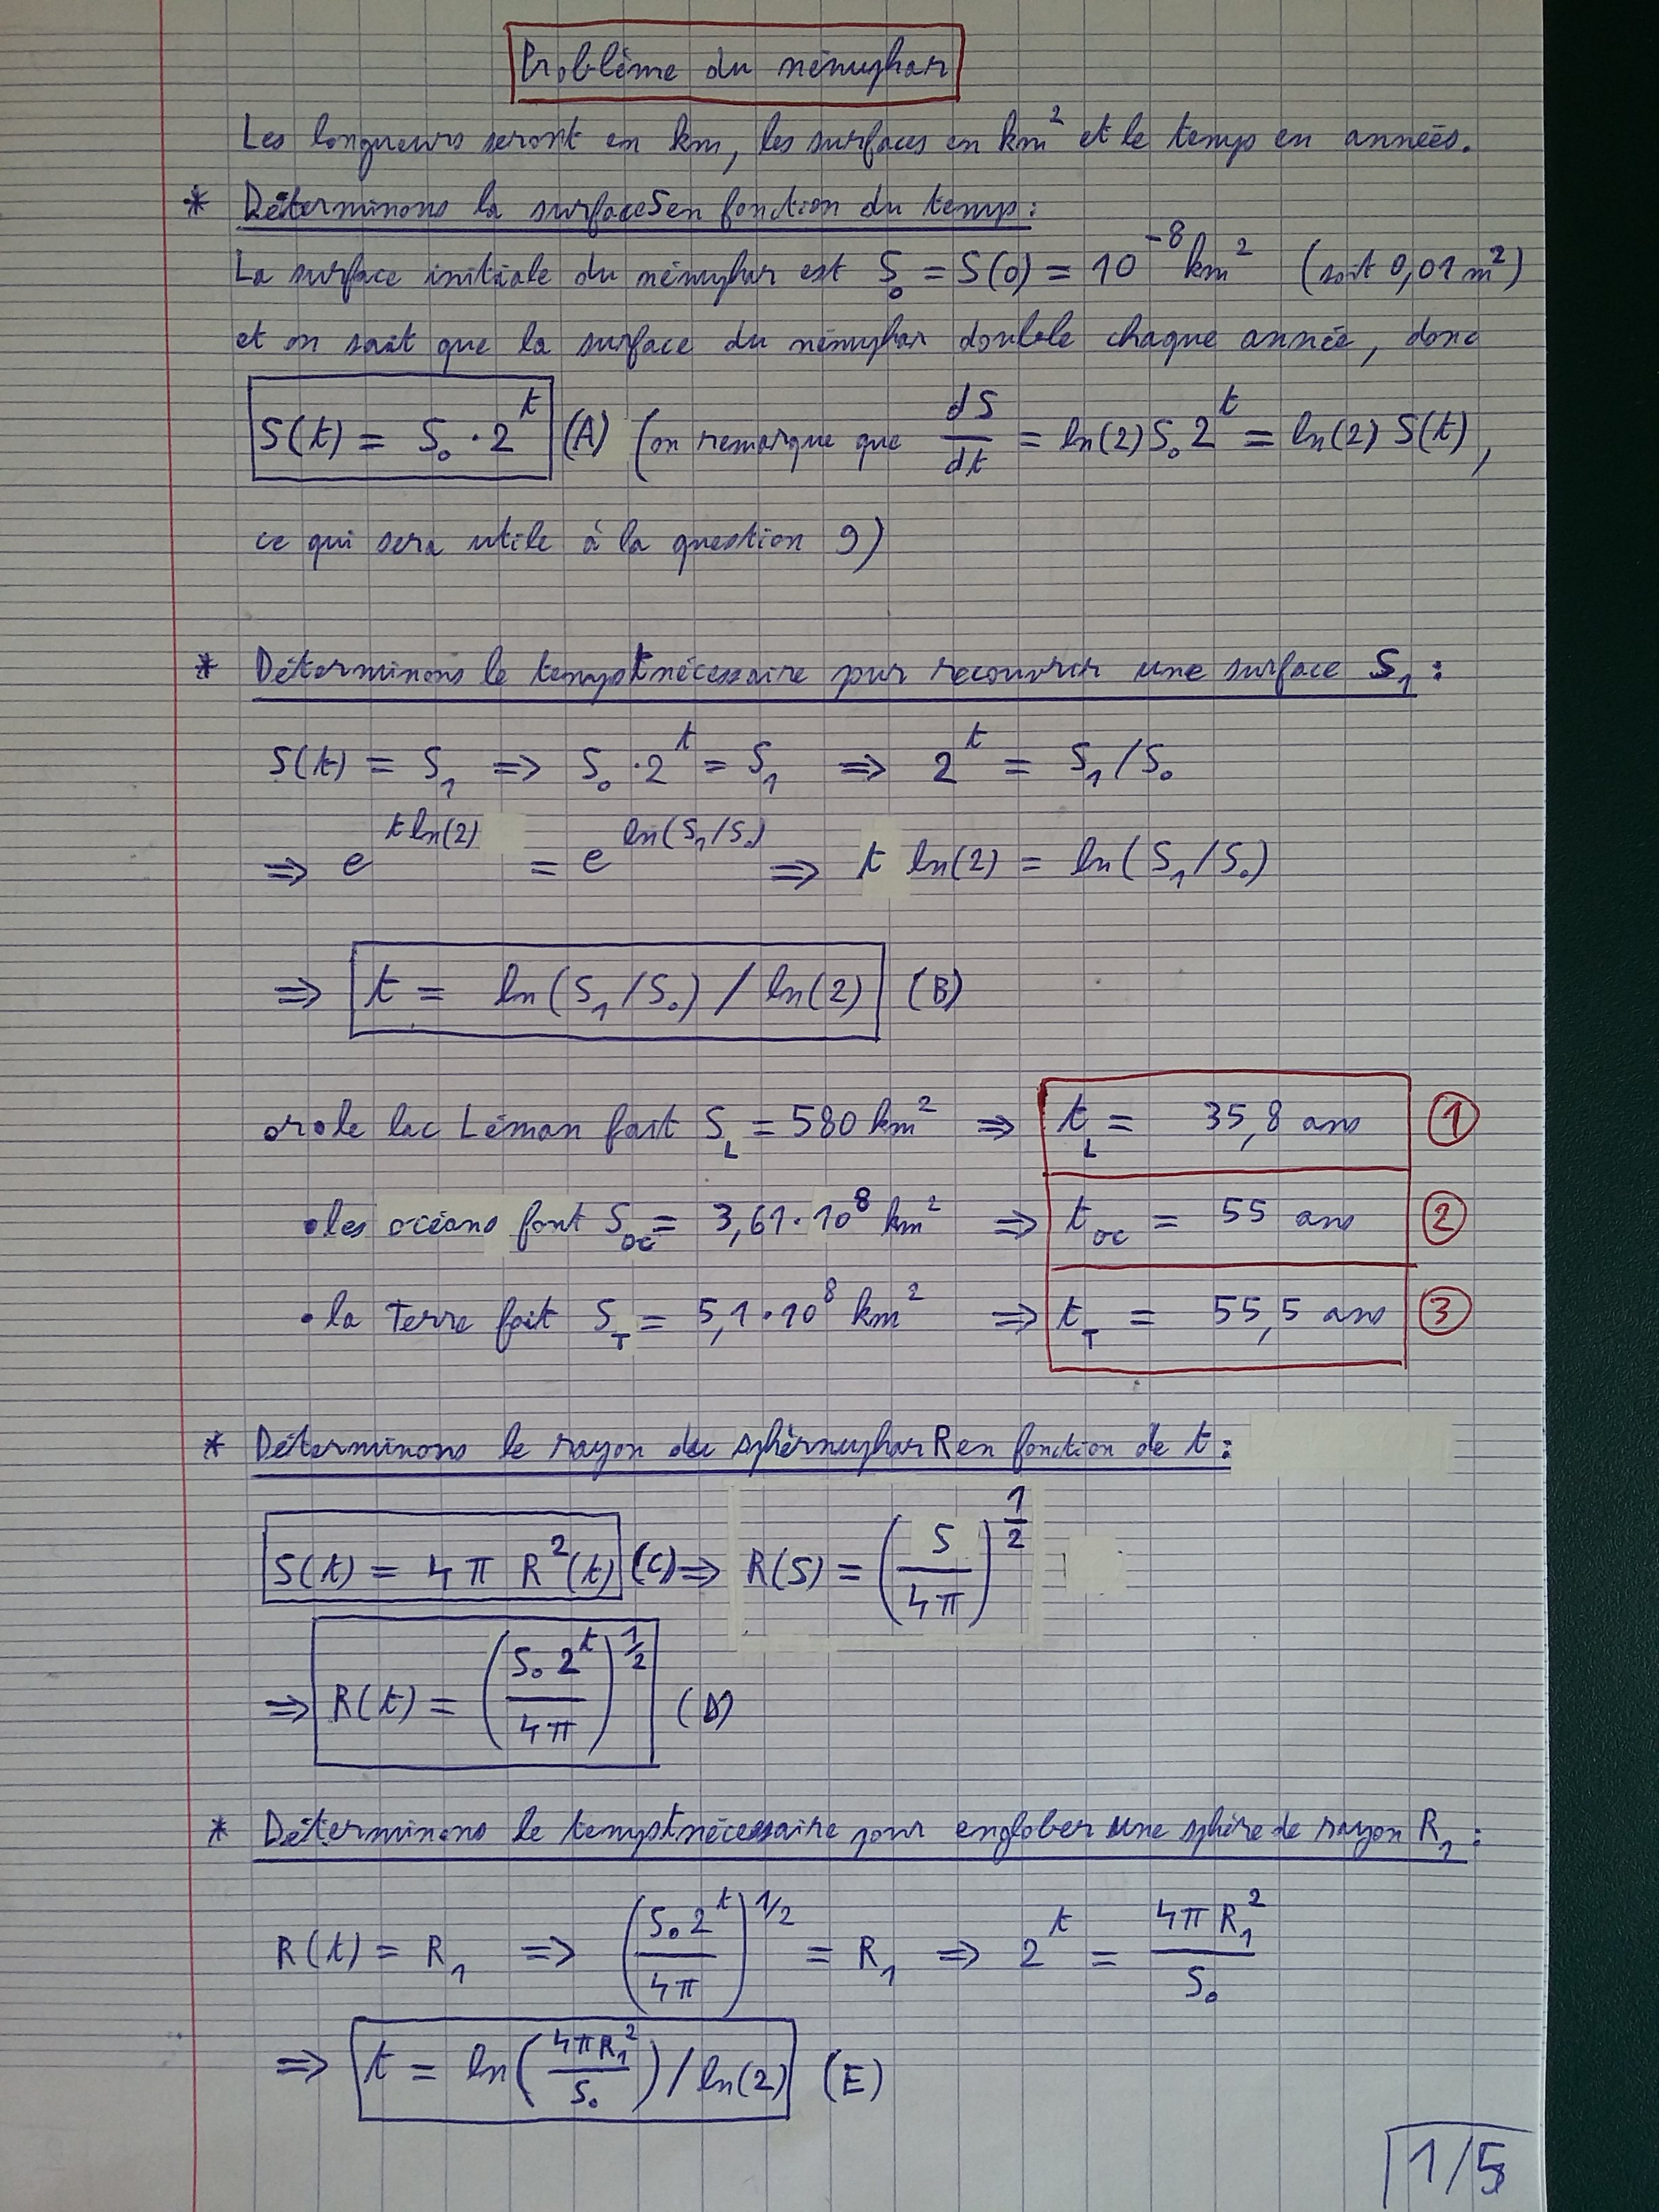 Problème du nénuphar
Les longueurs seront en km, les surfaces en km² et le temps en années.
* Déterminons la surface S en fonction du temps :
La surface initiale du nénuphar est S₀ = S(0) = 10⁻⁸ km² (soit 0,01 m²)
et on sait que la surface du nénuphar double chaque année, donc
S(t) = S₀ · 2^t (A) (on remarque que dS/dt = ln(2) S₀ 2^t = ln(2) S(t),
ce qui sera utile à la question 9)
* Déterminons le temps t nécessaire pur recouvrir une surface S₁ :
S(t) = S₁ ⇒ S₀ · 2^t = S₁ ⇒ 2^t = S₁/S₀
⇒ e^(t ln(2)) = e^(ln(S₁/S₀)) ⇒ t ln(2) = ln(S₁/S₀)
⇒ t = ln(S₁/S₀) / ln(2) (B)
or • le lac Léman fait S_L = 580 km² ⇒ t_L = 35,8 ans ①
• les océans font S_oc = 3,61 · 10⁸ km² ⇒ t_oc = 55 ans ②
• la Terre fait S_T = 5,1 · 10⁸ km² ⇒ t_T = 55,5 ans ③
* Déterminons le rayon du sphérnuphar R en fonction de t :
S(t) = 4 π R²(t) (C) ⇒ R(S) = (S/4π)^(1/2)
⇒ R(t) = (S₀ 2^t/4π)^(1/2) (D)
* Déterminons le temps t nécessaire pour englober une sphère de rayon R₁ :
R(t) = R₁ ⇒ (S₀ 2^t/4π)^(1/2) = R₁ ⇒ 2^t = 4π R₁²/S₀
⇒ t = ln(4πR₁²/S₀) / ln(2) (E)
1/5